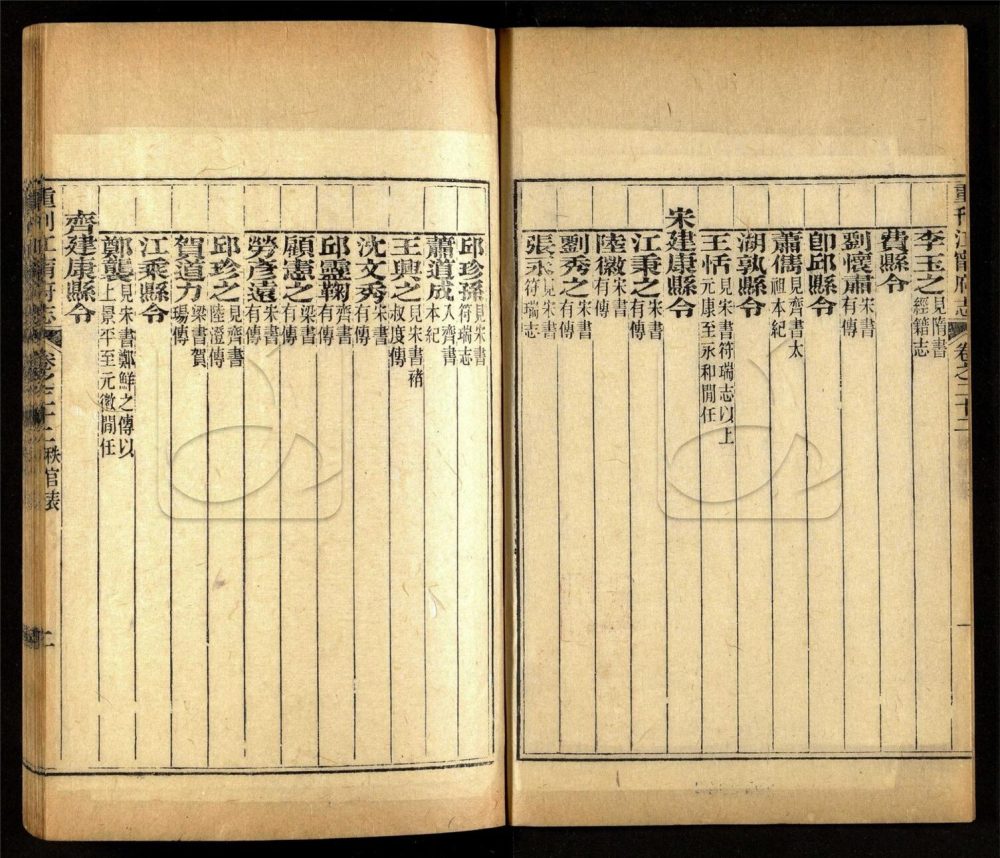 重刊江甯府志 卷之二十二 一
李玉之見隋書經籍志
費縣令
劉懷肅宋書有傳
卽邱縣令
蕭儁見齊書太祖本紀
湖孰縣令
王恬見宋書符瑞志以上元康至永和閒任
宋建康縣令
江秉之宋書有傳
陸徽宋書有傳
劉秀之宋書有傳
張永見宋書符瑞志
邱珍孫見宋書符瑞志
蕭道成入齊書本紀
王興之見宋書褚叔度傳
沈文秀宋書有傳
邱靈鞠齊書有傳
顧憲之梁書有傳
勞彥遠宋書有傳
邱珍之見齊書陸澄傳
賀道力梁書賀瑒傳
江乘縣令
鄭襲見宋書鄭鮮之傳以上景平至元徽閒任
齊建康縣令
重刊江甯府志 卷之二十二 秩官表 二